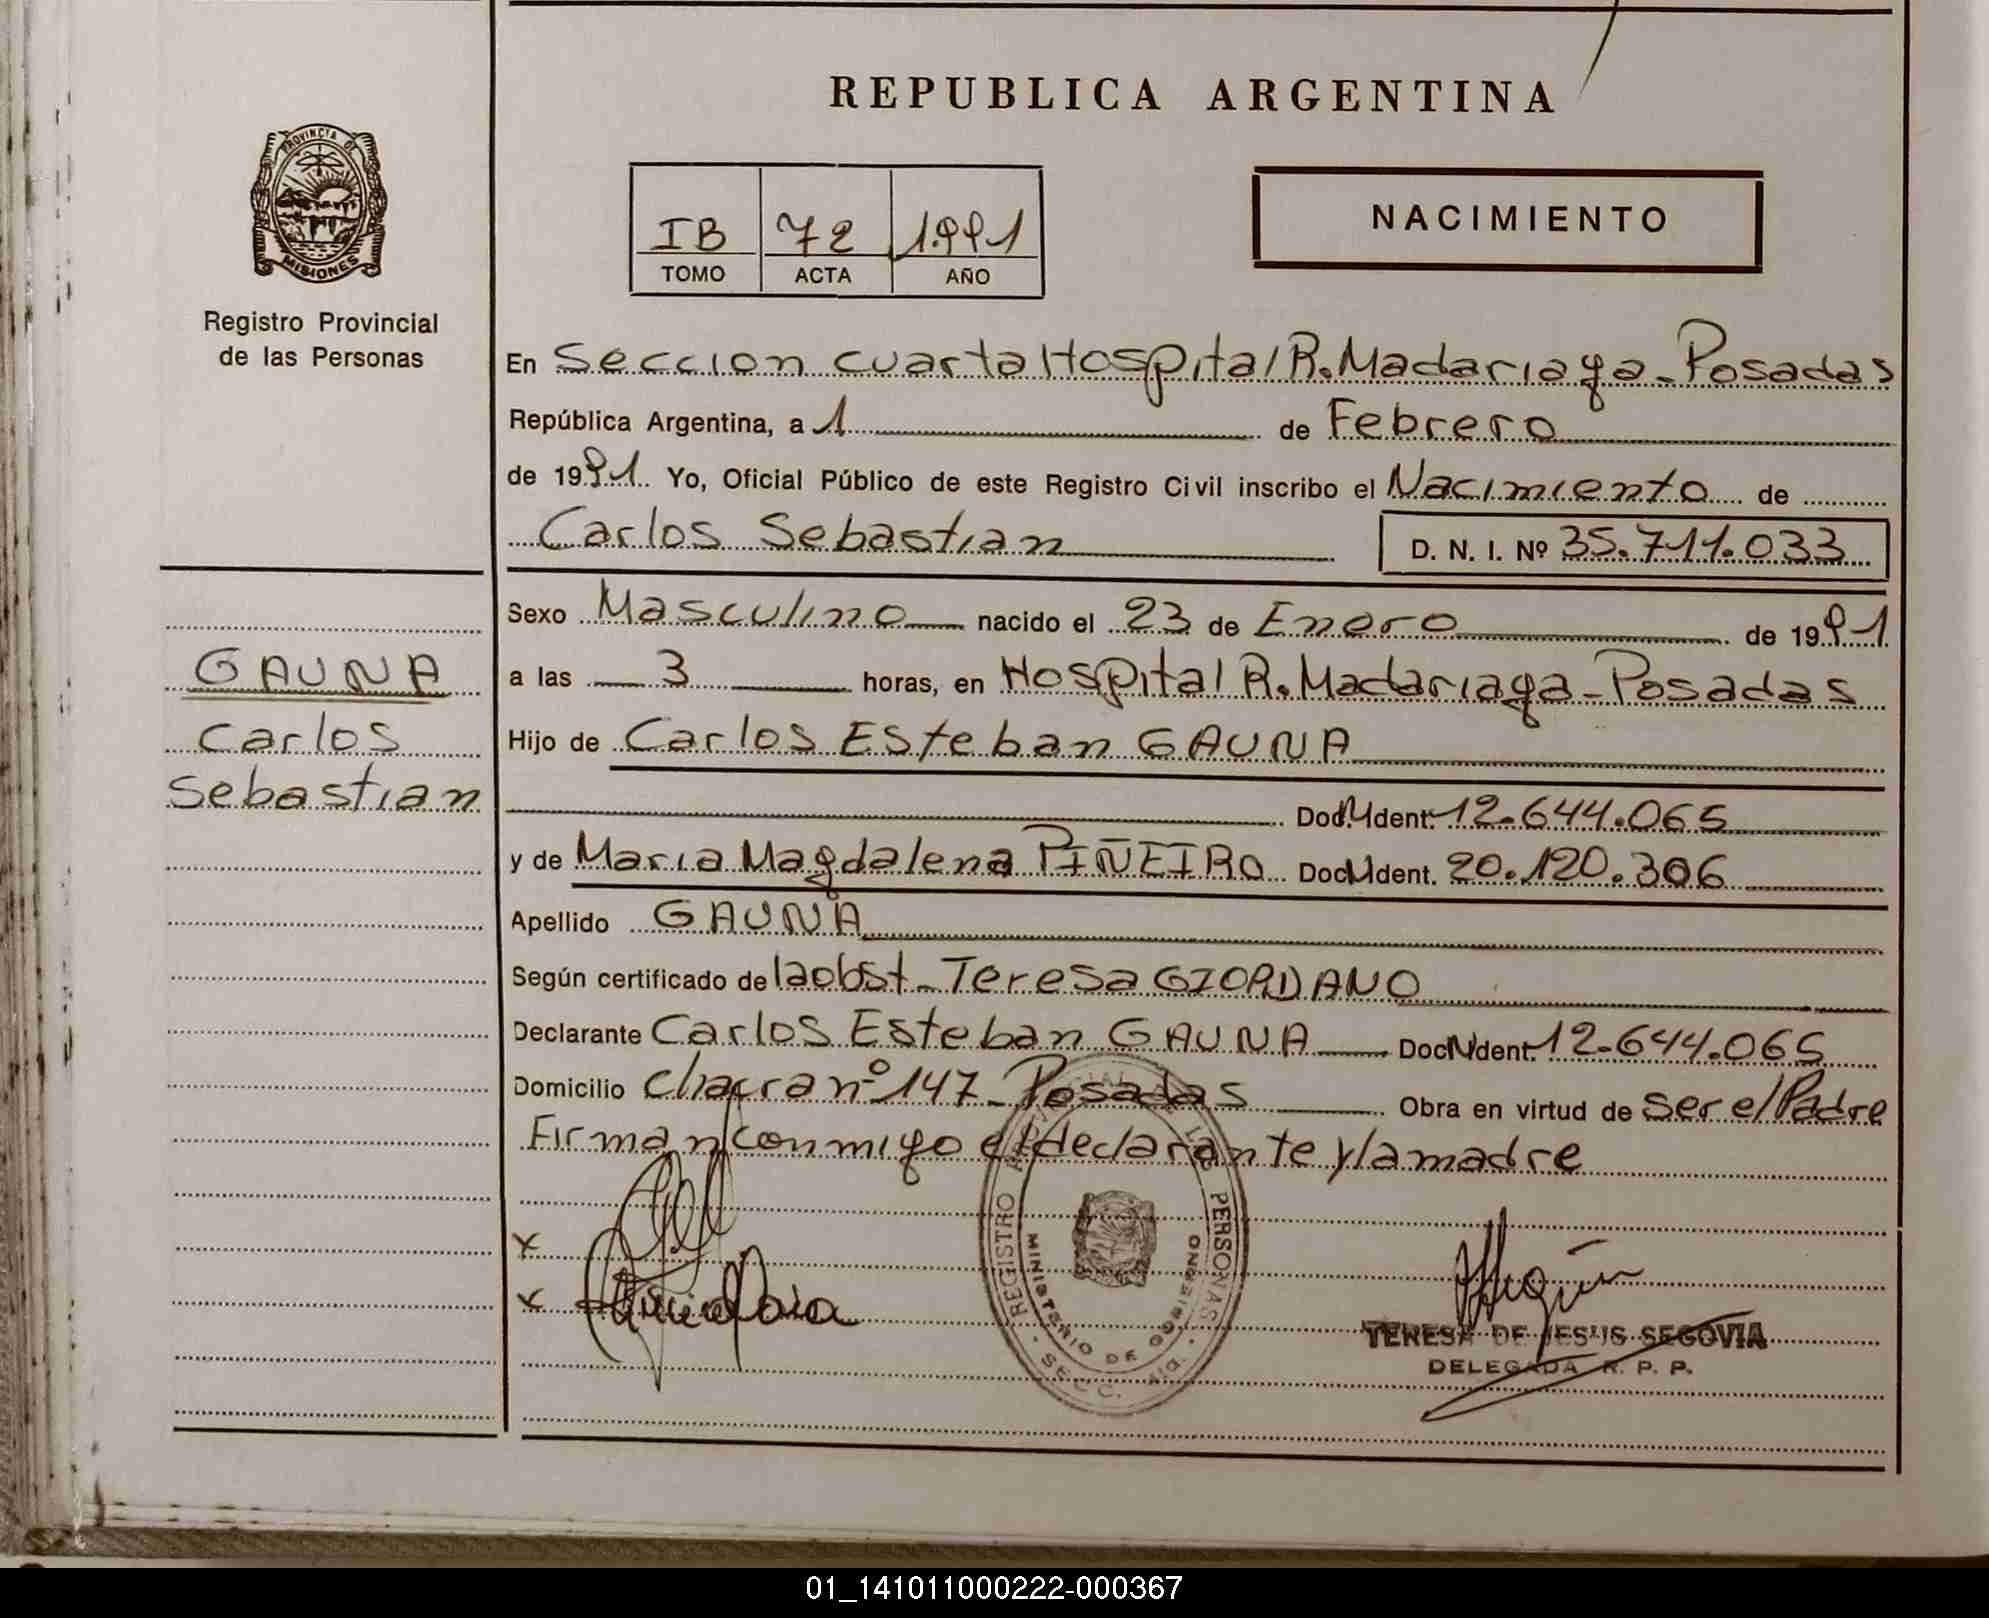 REPUBLICA ARGENTINA
PROVINCIA DE
MISIONES
Registro Provincial
de las Personas
IB 72 1991
TOMO ACTA AÑO
NACIMIENTO
En Seccion cuarta Hospital R. Madariaga - Posadas
República Argentina, a 1 de Febrero
de 1991. Yo, Oficial Público de este Registro Civil inscribo el Nacimiento de
Carlos Sebastian D. N. I. Nº 35.711.033
Sexo Masculino nacido el 23 de Enero de 1991
a las 3 horas, en Hospital R. Madariaga - Posadas
Hijo de Carlos Esteban GAUNA
Doc. Ident. 12.644.065
y de Maria Magdalena PIÑEIRO Doc. Ident. 20.120.306
Apellido GAUNA
Según certificado de la obst. Teresa GIORDANO
Declarante Carlos Esteban GAUNA Doc. Ident. 12.644.065
Domicilio chacra nº 147 - Posadas Obra en virtud de ser el Padre
Firman conmigo el declarante y la madre
GAUNA
Carlos
Sebastian
x
x
REGISTRO PERSONAS
MINISTERIO DE GOBIERNO
SECC. 4ta.
TERESA DE JESUS SEGOVIA
DELEGADA R. P. P.
01_141011000222-000367